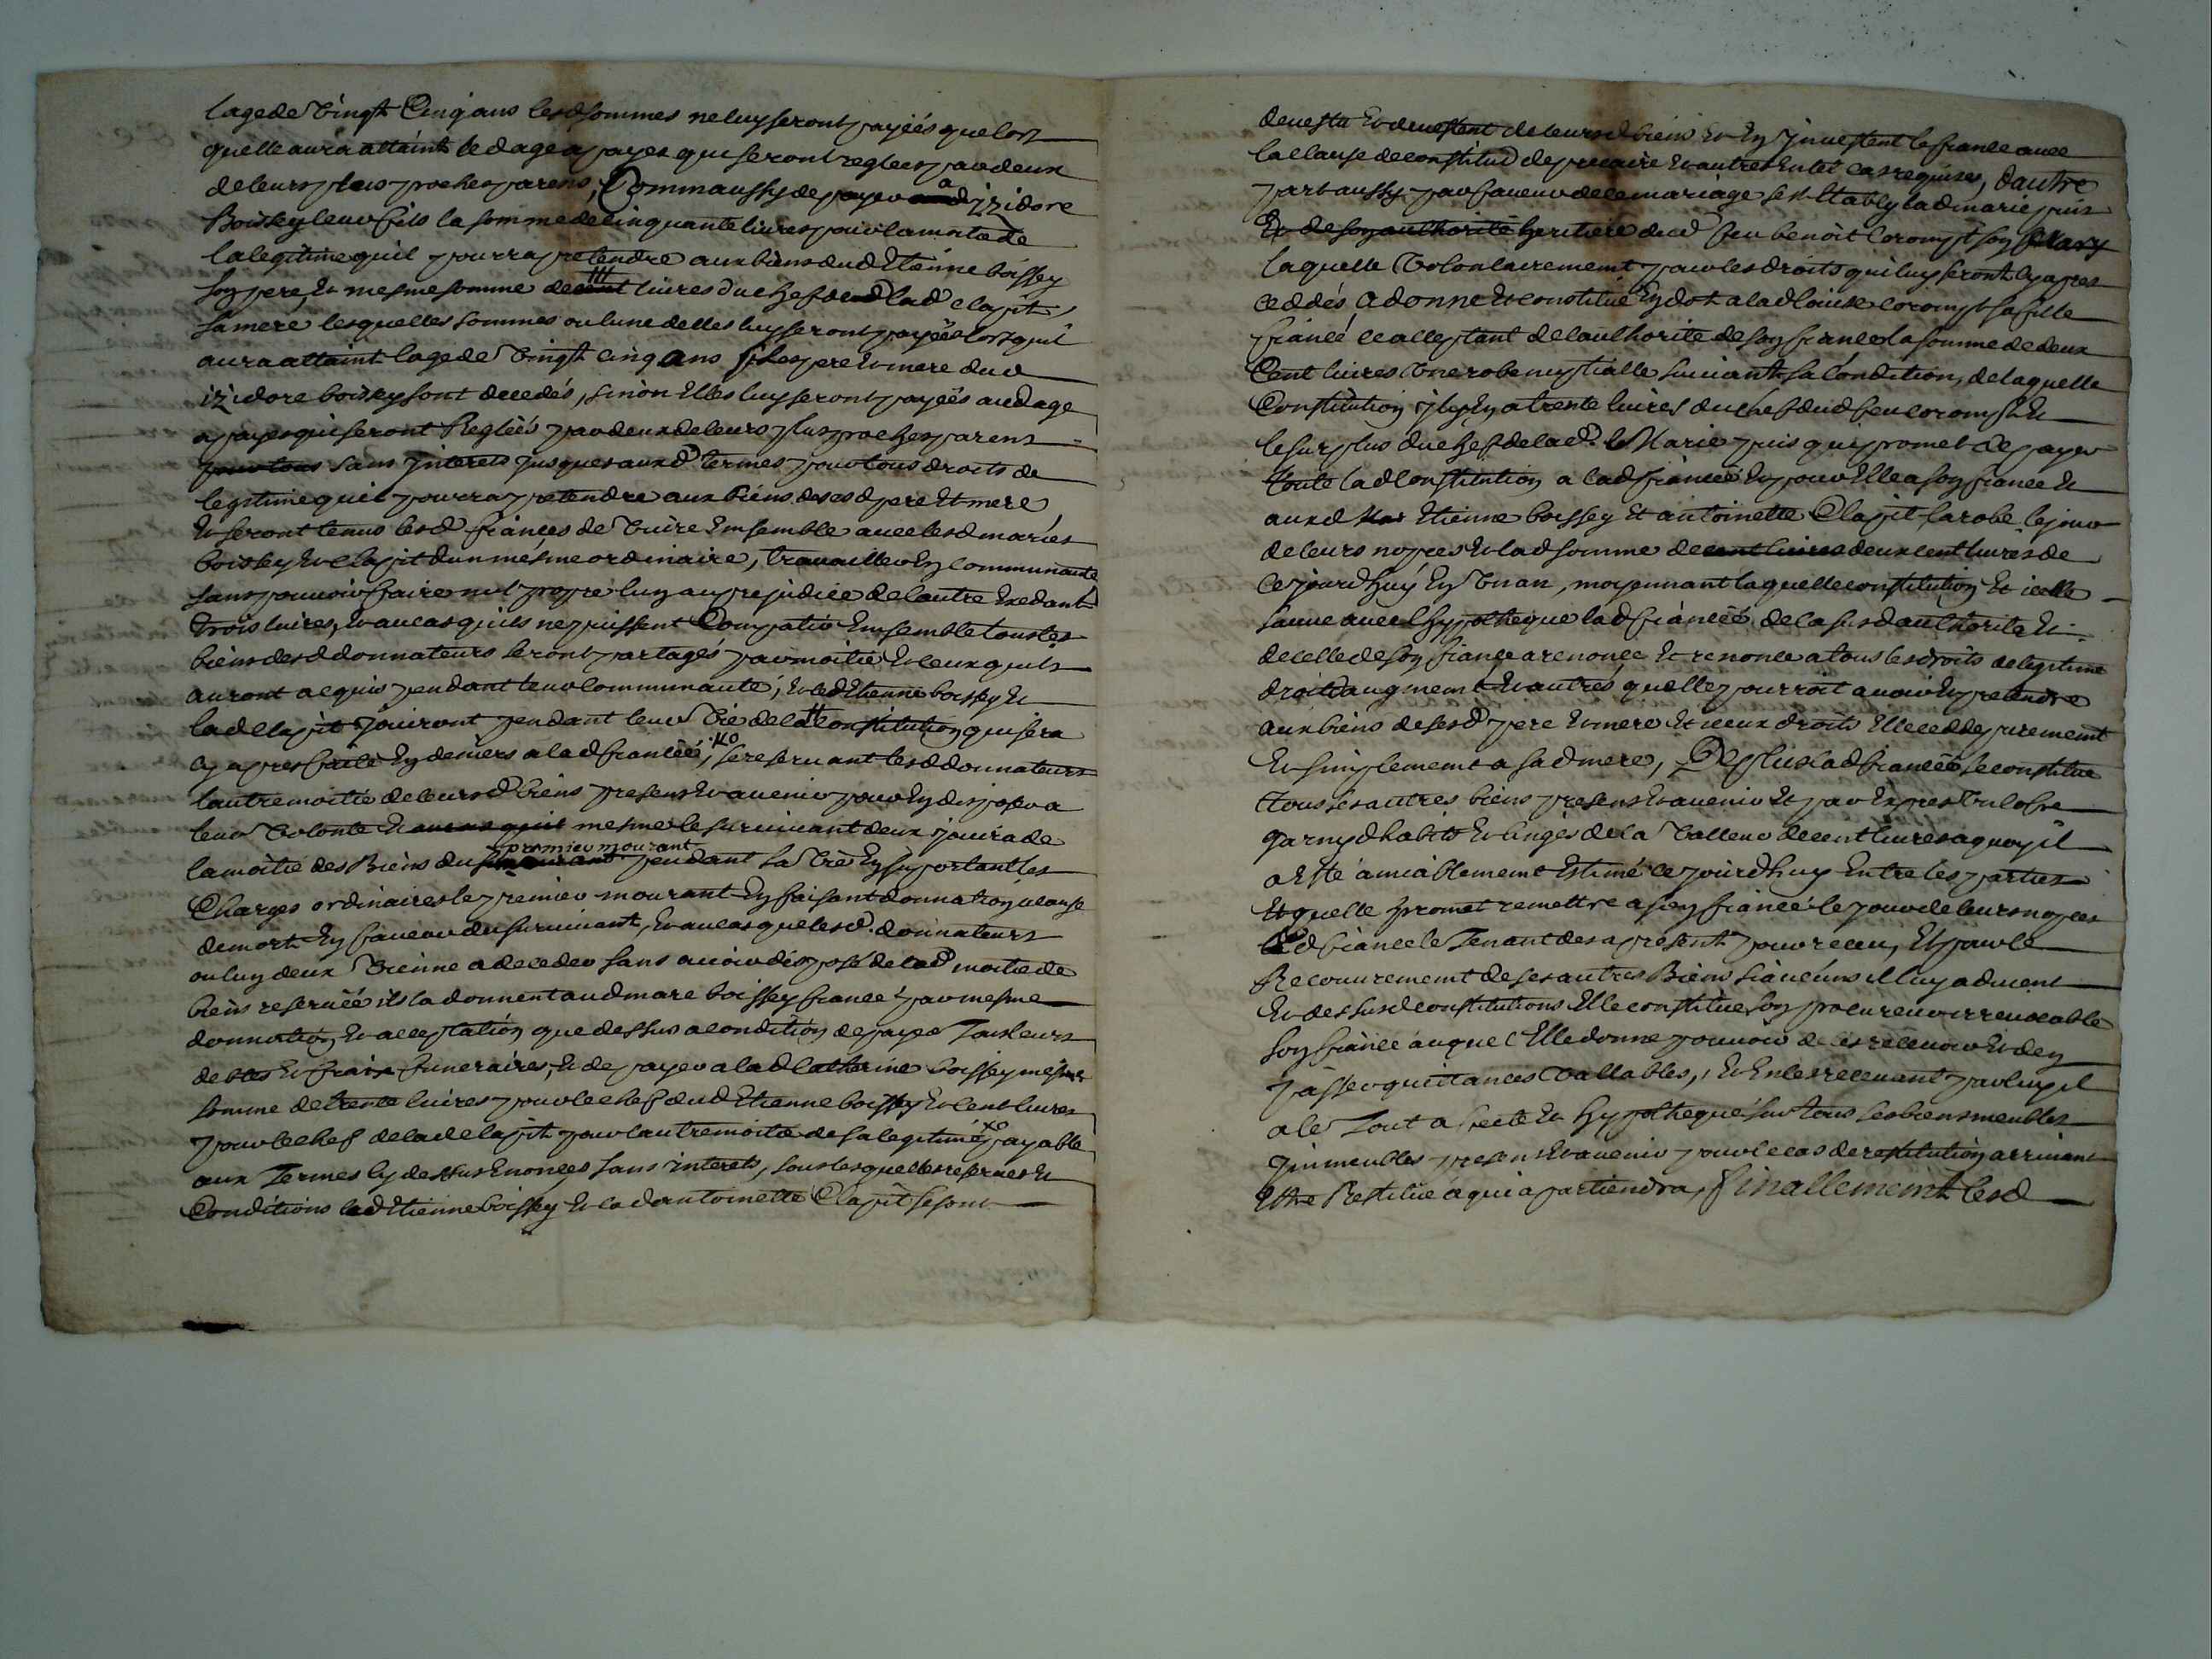 lage de vingt Cinq ans lesd sommes ne luy seront payéés que lors
quelle aura attaint led age a payes qui seront reglees par deux
de leurs plus proches parens, Comm aussy de payer a d izidore
Boissey leur fils la somme de cinquante livres pour la moitié de
la legitime quil pourra pretendre aux biens dud Etienne boissey
son pere, Et mesme somme de livres du chef de lad clapit
sa mere lesquelles sommes ou lune delles luy seront payéés lorsquil
aura attaint lage de vingt cinq ans si les pere et mere dud
izidore boissey sont decedés, sinon Elles luy seront payéés aud age
a payes qui seront Regléés par deux de leurs plus proches parens
pour tous sans interets jusques auxd termes pour tous droits de
legitime quil pourra pretendre aux biens de sesd pere Et mere
Et seront tenus lesd fiancés de vivre Ensemble avec lesd mariés
boissey Et clapit dun mesme ordinaire, travailler En communauté
sans pouvoir faire nul propre lun au prejudice de lautre Exedant
trois livres, Et au cas quils ne puissent Compatir Ensemble tous les
biens desd donnateurs seront partagés par moitié Et ceux quils
auront acquis pendant leur communauté, Et led Etienne boissey Et
lad clapit jouiront pendant leur vie de la constitution qui sera
cy apres faite En deniers a lad fiancéé, se reservant lesd donnateurs
lautre moitié de leursd biens presens Et avenir pour En disposer a
leur volonté Et au cas quil mesme le survivant deux jouira de
la moitié des Biens du premier mourant pendant sa vie En suportant les
Charges ordinaires le premier mourant En faisant donnation a cause
de mort En faveur du survivant, Et au cas que lesd. donnateurs
ou lun deux vienne a deceder sans avoir disposé de lad moitié de
biens reservéé ils la donnent aud marc boissey fiancé par mesme
donnation Et acceptation que dessus a condition de payer tous leurs
debtes Et fraix funeraires, Et de payer a lad Catherine boissey mesme
somme de trente livres pour le chef dud Etienne boissey Et cent livres
pour le chef de lad clapit pour lautre moitié de sa legitime payable
aux termes cy dessus Enoncés sans interets, sous lesquelles reserves Et
Conditions led Etienne boissey Et lad antoinette Clapit se sont
devestu Et devestent de leursd biens Et En investent le fiancé avec
la clause de constitut de precaire Et autres En tel cas requises, dautre
part aussy par faveur de ce mariage sest Etably lad marie puis
Et de son authorité heritiere dud feu benoit Corompt son Mary
laquelle volontairement pour les droits qui luy seront cy apres
ceddés, a donné Et constitué En dot a lad louise corompt sa fille
fiancéé acceptant de lauthorité de son fiancé la somme de deux
Cent livres une robe nuptialle suivant sa Condition, de laquelle
Constitution il y En a trente livres du chef dud feu corompt Et
le surplus du chef de lad. Marie puis quy promet de payer
toute lad Constitution a lad fiancéé Et pour Elle a son fiancé Et
auxd Etienne boissey Et antoinette Clapit la robe le jour
de leurs nopces Et lad somme de cent livres deux cent livres de
ce jourdhuy En un an, moyennant laquelle constitution Et icelle
sauve avec lhypotheque lad fiancéé de la susd authorité Et
de celle de son fiancé a renoncé Et renonce a tous les droits de legitime
droit daugment Et autres quelle pourroit avoir Et pretendre
aux biens de sesd pere Et mere Et iceux droits Elle cedde purement
Et simplement a sad mere, De plus lad fiancéé se constitue
tous ses autres biens presens Et avenir Et par Expres un cofre
garny dhabits Et linges de la valleur de cent livres a quoy il
a Esté amiablement Estimé ce jourdhuy Entre les parties
Et quelle promet remettre a son fiancé le jour de leurs nopces
led fiancé le tenant des a present pour receu, Et pour le
Recouvrement de ses autres Biens si aucuns il luy advient
Et des susd constitutions Elle constitue son procureur irrevocable
son fiancé auquel Elle donne pouvoir de les recevoir Et den
passer quittances vallables, Et En les recevant par luy il
a le tout a Et hypothequé sur tous ses biens meubles
immeubles presens Et avenir pour le cas de restitution arrivant
Estre Restitué a qui apartiendra, finallement lesd